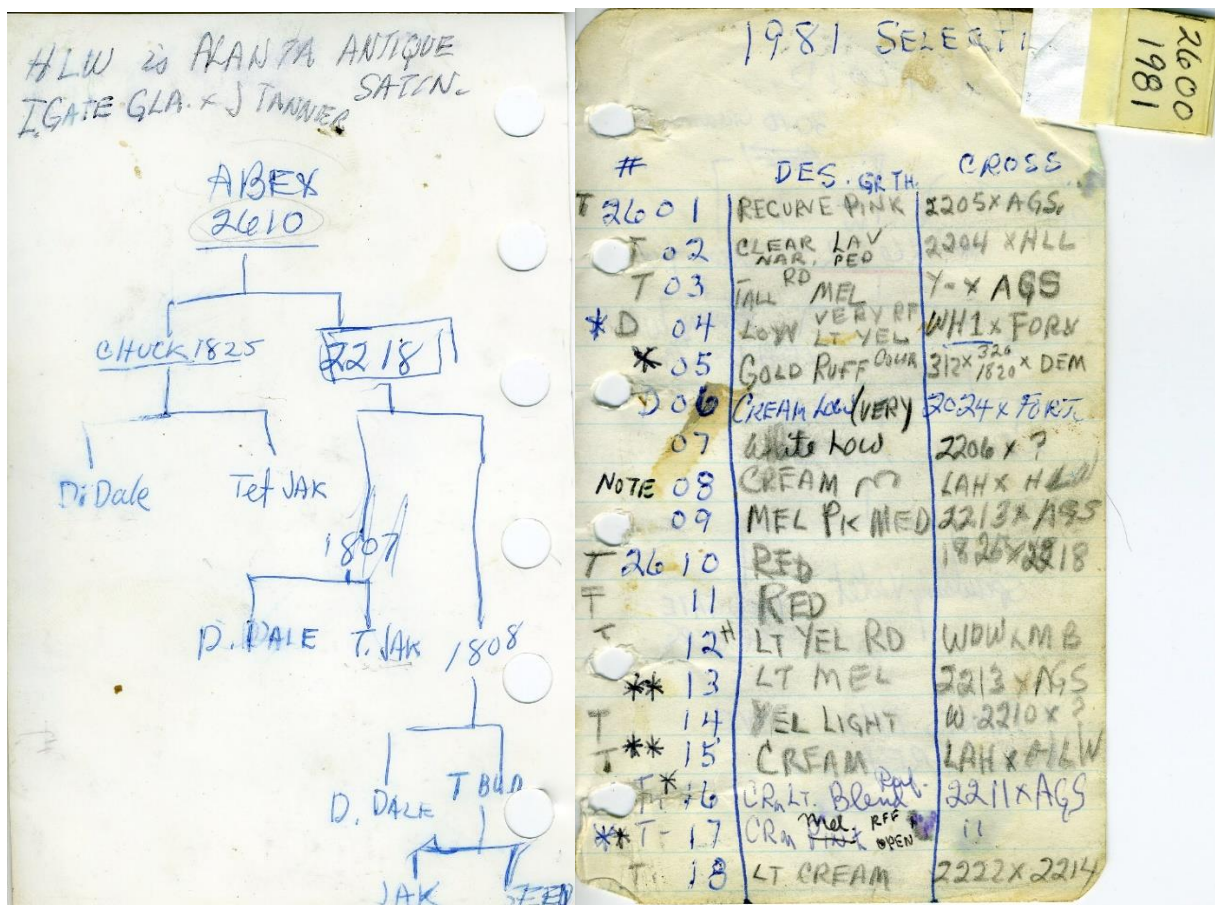 HLW is ALANTA ANTIQUE
SATIN.
I.GATE GLA. x J TANNER
ABEX
2610
CHUCK 1825
2218
Di Dale
Tet JAK
1807
D. DALE
T. JAK
1808
D. DALE
T BUD
JAK
SEED
1981 SELECTI
2600
1981
# DES. GRTH. CROSS
T 2601 RECURVE PINK 2205 x AGS.
T 02 CLEAR LAV 2204 x HLL
NAR. PED
T 03 TALL RD MEL Y- x AGS
VERY RF
*D 04 LOW LT YEL WH1 x FORN
* 05 GOLD RUFF 312 x 326 1820 x DEM
D 06 CREAM LOW (VERY) 2024 x
07 White LOW 2206 x ?
NOTE 08 CREAM LAH x HLW
09 MEL PK MED 2213 x AGS
T 2610 RED x 2218
T 11 RED
T 12 H LT YEL RD
** 13 LT MEL 2213 x AGS
T 14 YEL LIGHT W-2210 x ?
T ** 15 CREAM LAH x HLW
T. * 16 CRM LT. Blend Ruf. 2211 x AGS
Mel. RFF +
** T- 17 CRM PINK OPEN 11
T. 18 LT CREAM 2222 x 2214